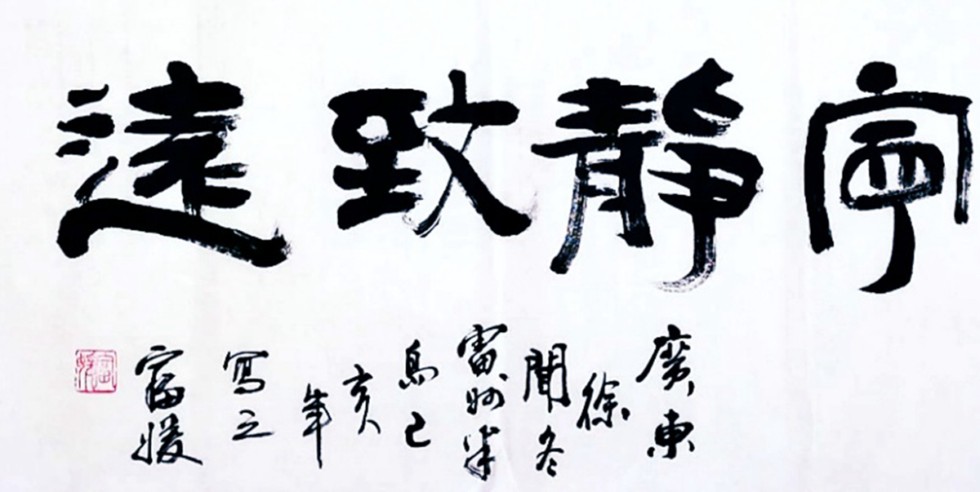 寧靜致遠
廣東
徐
聞冬
雷州半
島己
亥
年
寫之